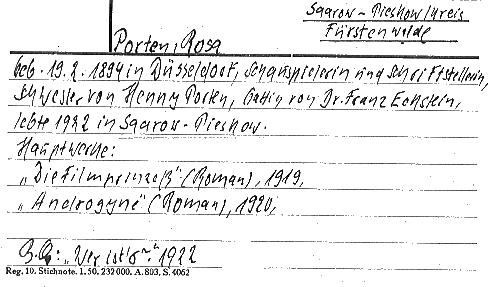 Saarow-Pieskow/Kreis
Fürstenwalde
Porten, Rosa
geb. 19. 2. 1894 in Düsseldorf, Schauspielerin und Schriftstellerin,
Schwester von Henny Porten, Gattin von Dr. Franz Eckstein,
lebte 1922 in Saarow-Pieskow.
Hauptwerke:
„Die Filmprinzeß" (Roman), 1919,
„Androgyne" (Roman), 1920,
"Wer ist's" 1922
Reg. 10. Stichnote. 1. 50. 232000. A. 803. S. 4062